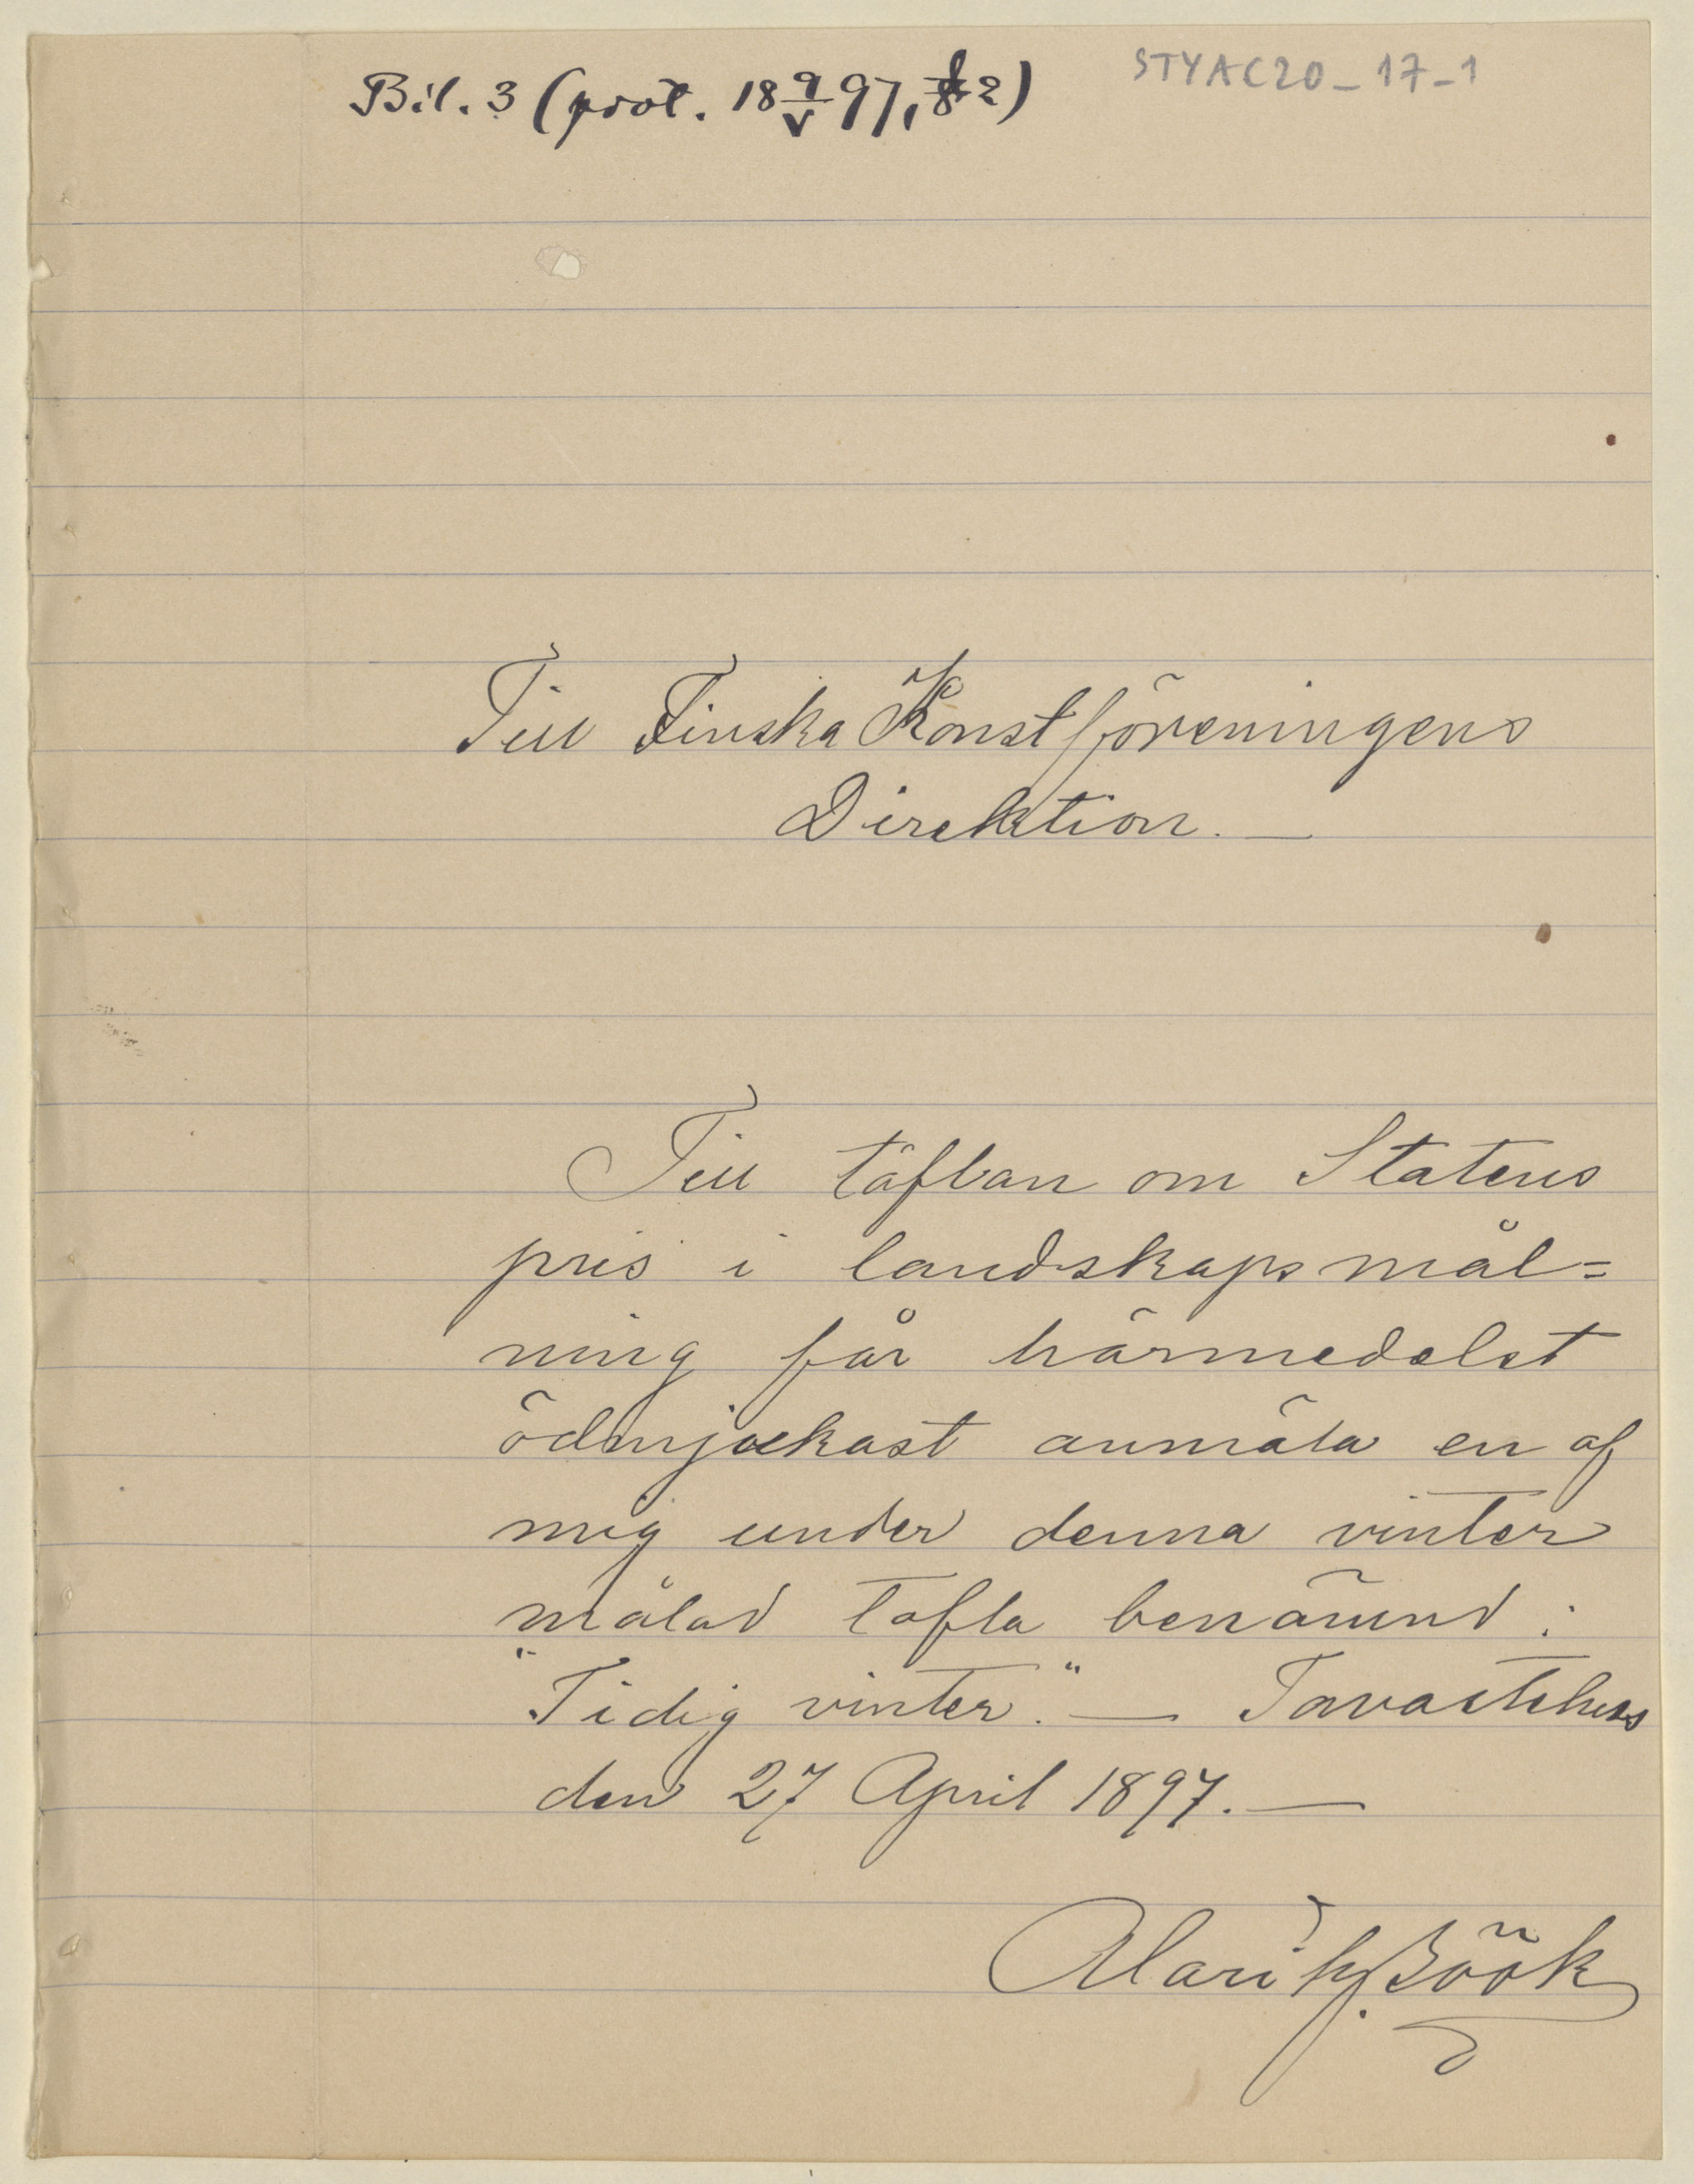 Bil. 3 (prot. 18 9/V 97, § 2)
STYAC20_17_1
Till Finska Konstföreningens
Direktion. —
Till täflan om Statens
pris i landskapsmål=
ning får härmedelst
ödmjukast anmäla en af
mig under denna vinter
målad tafla benämnd :
"Tidig vinter." — Tavastehus
den 27 April 1897. —
Alarik Böök